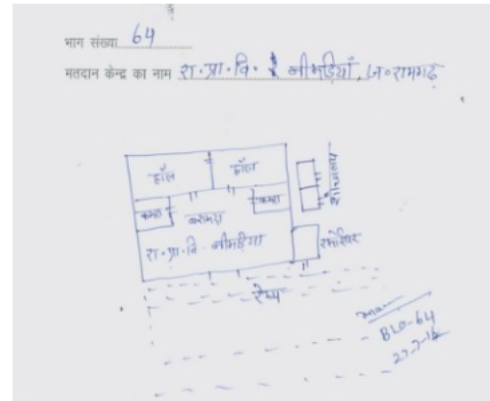 भाग संख्या 64
मतदान केन्द्र का नाम रा॰प्रा॰वि॰ नीमड़ियाँ, रामगढ़
हॉल हॉल
शौचालय
कमरा बरामदा कमरा
रा॰प्रा॰वि॰ नीमड़िया
रसोईघर
रैम्प
BLO-64